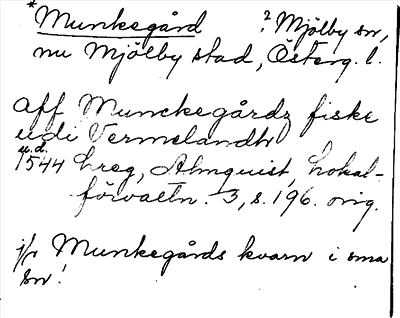 *Munkegård ? Mjölby sn,
nu Mjölby stad, Österg. l.
aff Munckegårdz fiske
udi Vermelandh
u.d.
1544 hreg, Almquist, Lokal-
förvaltn. 3, s. 196. orig.
jfr Munkegårds kvarn i sma
sn!